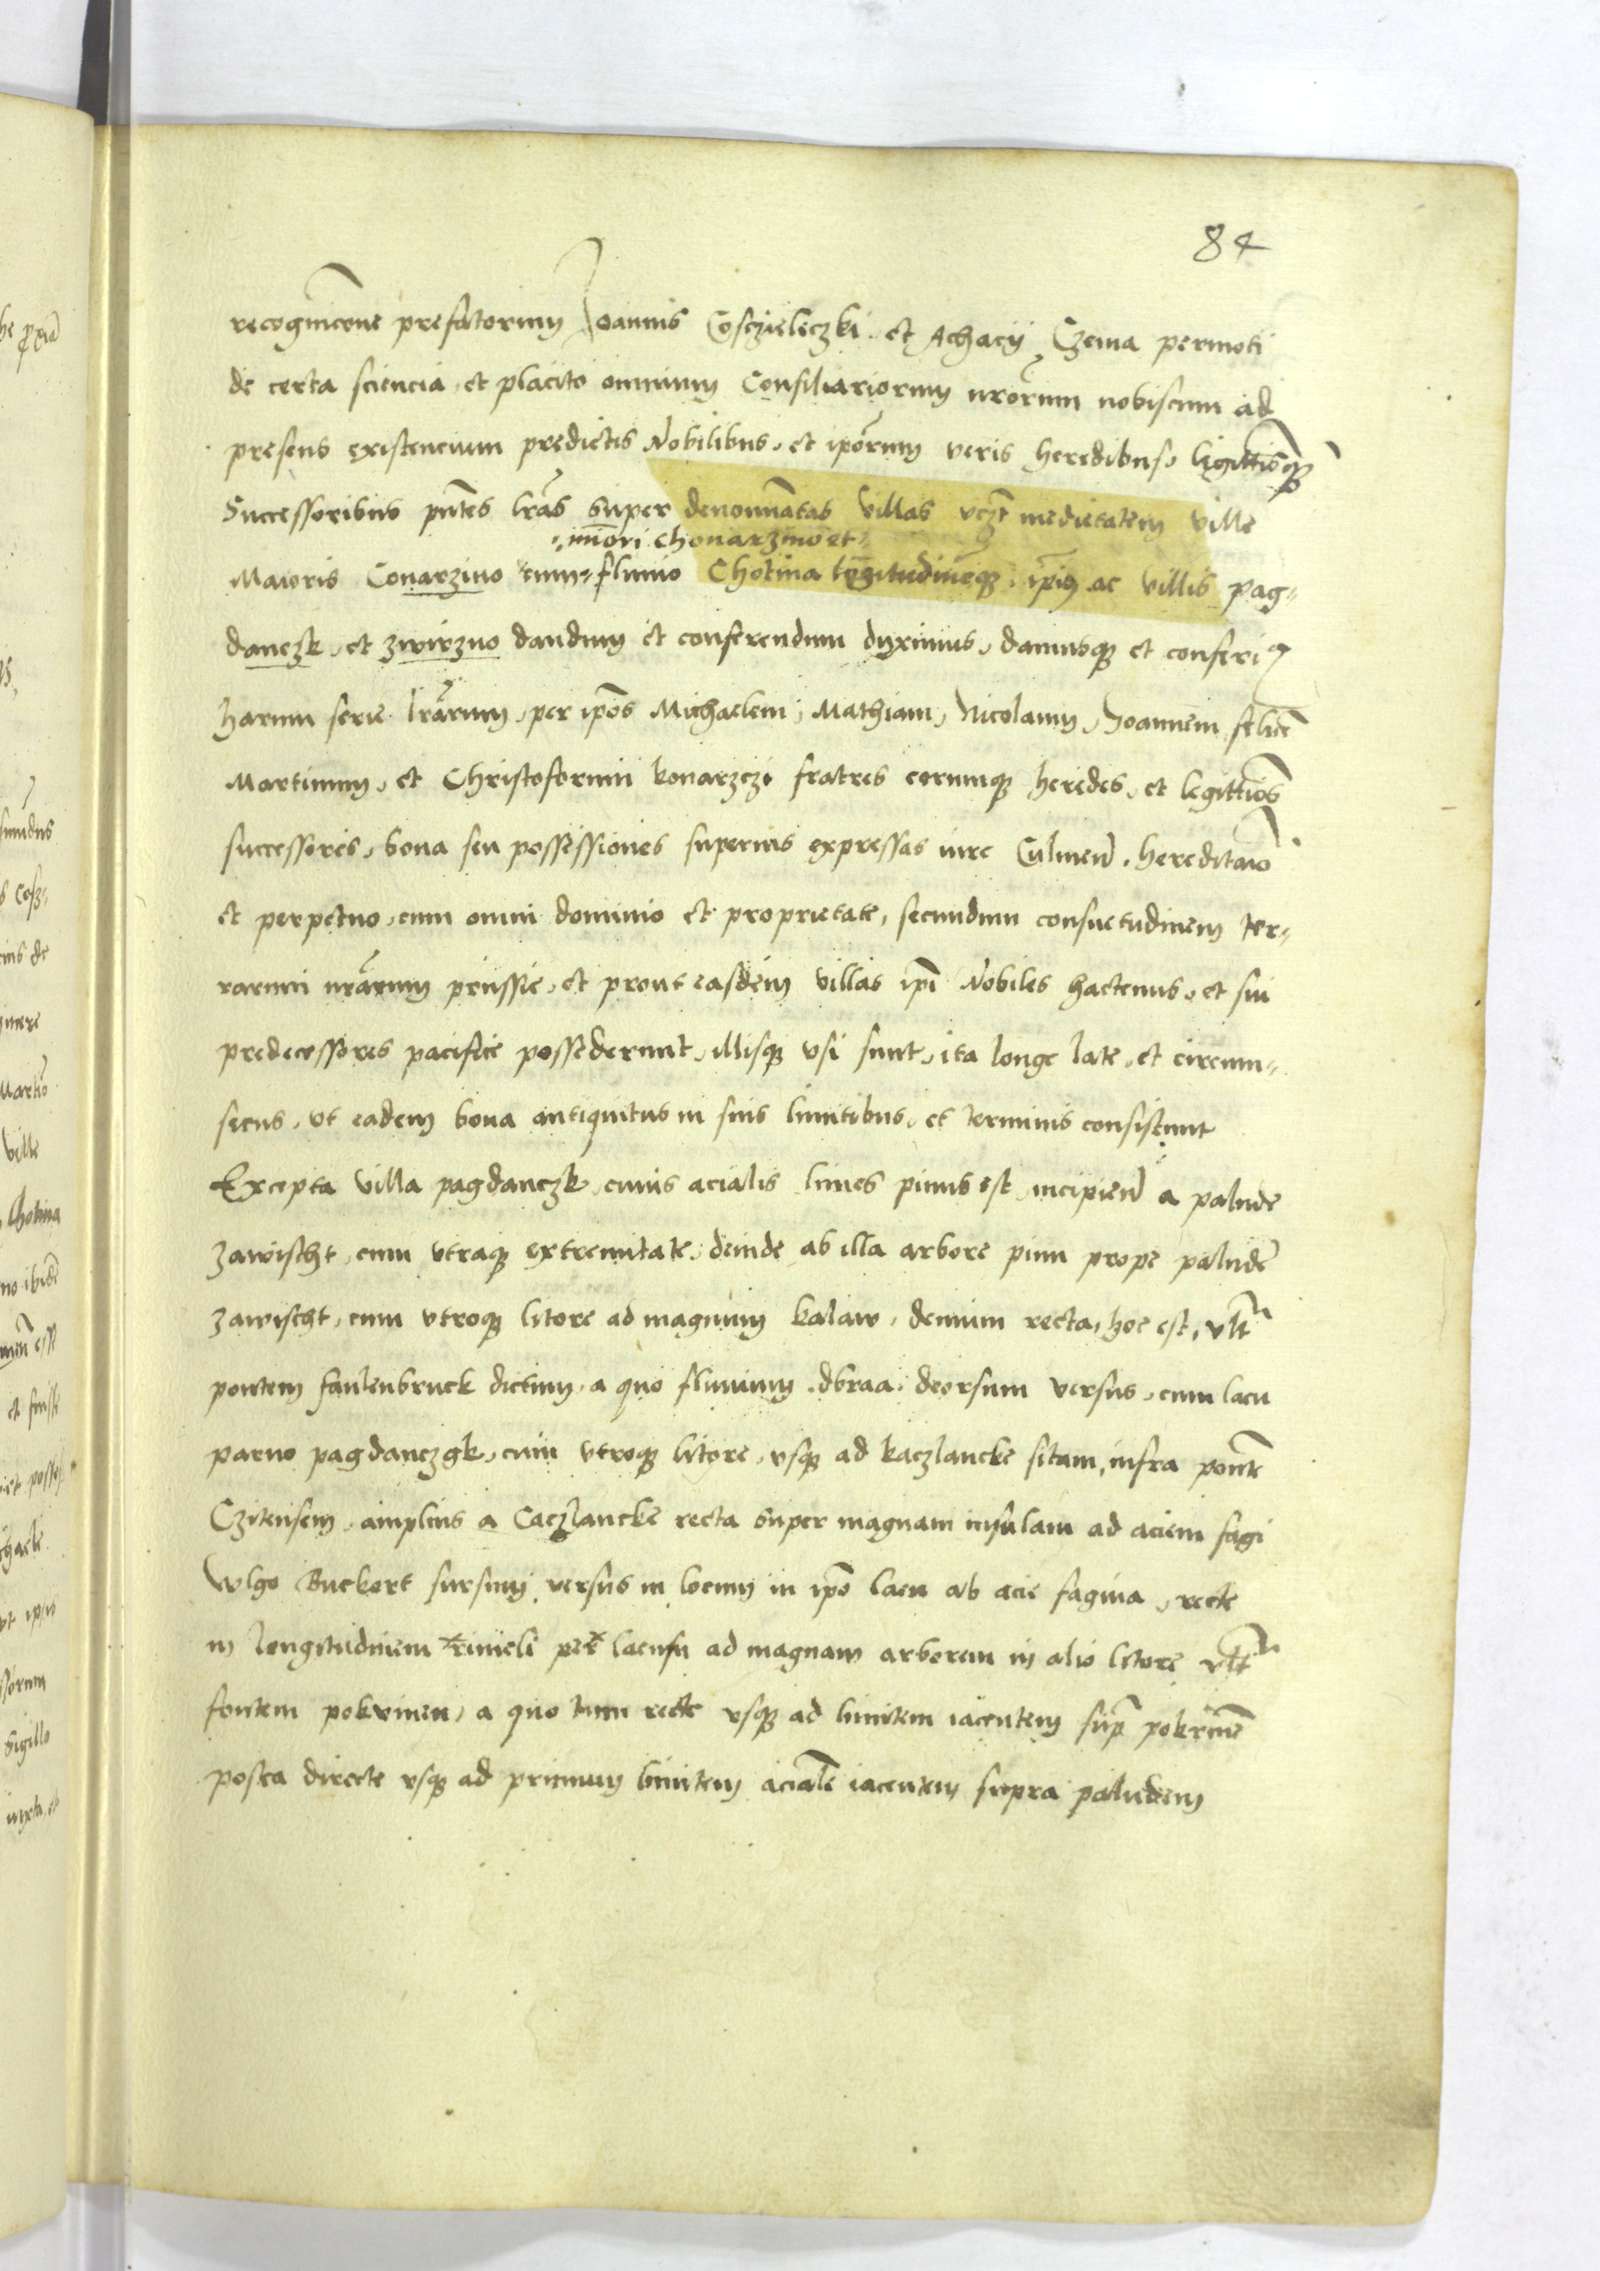 84
recognicõne prefatorum Joannis Cosczieleczki et Achacij Czema permoti
de certa sciencia et placito omnium Consiliariorum nrõrum nobiscum ad
presens existencium predictis Nobilibus, et ipõrum veris heredibus, legittimisque
Successoribus pñtes lrãs super denominatas villas vczt medietatem ville
minori Chonarzino et
Maioris Conarzino cum fluuio Chotina longitudineque ipius ac villis pag=
danczk, et zwirzno dandum et conferendum duximus, damusque et conferi9
harum serie lrãrum, per ipõs Michaelem, Mathiam, Nicolaum, Joannem, felicẽ
Martinum, et Christoferum konarzczi fratres eorumque heredes, et legittimos
successores, bona seu possessiones superius expressas iure Culmen, hereditario
et perpetuo, cum omni dominio et proprietate, secundum consuetudinem ter=
rarum nrãrum prussie, et prout easdem villas ipi Nobiles hactenus, et sui
predecessores pacifice possederunt, illisque vsi sunt, ita longe late, et circum=
secus, vt eadem bona antiquitus in suis limitibus, et terminis consistunt
Excepta villa pagdanczk, cuius acialis limes pinus est, incipien a palude
zawischt, cum vtraque extremitate, deinde ab illa arbore pinu prope paludẽ
zawischt, cum vtroque litore ad magnum kalaw, demum recta, hoc est, vlt
pontem faulenbruck dictum, a quo fluuium dbraa, deorsum versus, cum lacu
paruo pagdanczgk, cum vtroque litore, vsque ad kaczlancke sitam, infra pontẽ
Czitensem, amplius a Caczlancke recta super magnam insulam ad aciem fagi
wlgo Buckort sursum versus in locum in ipo lacu ab acie fagina, recte
in longitudinem riuieli per lacusu ad magnam arborem in alio litore vlt
fontem pokrinen, a quo tum recte vsque ad limitem iacentem sup pokrinẽ
postea directe vsque ad primum limitem acialẽ iacentem supra paludem